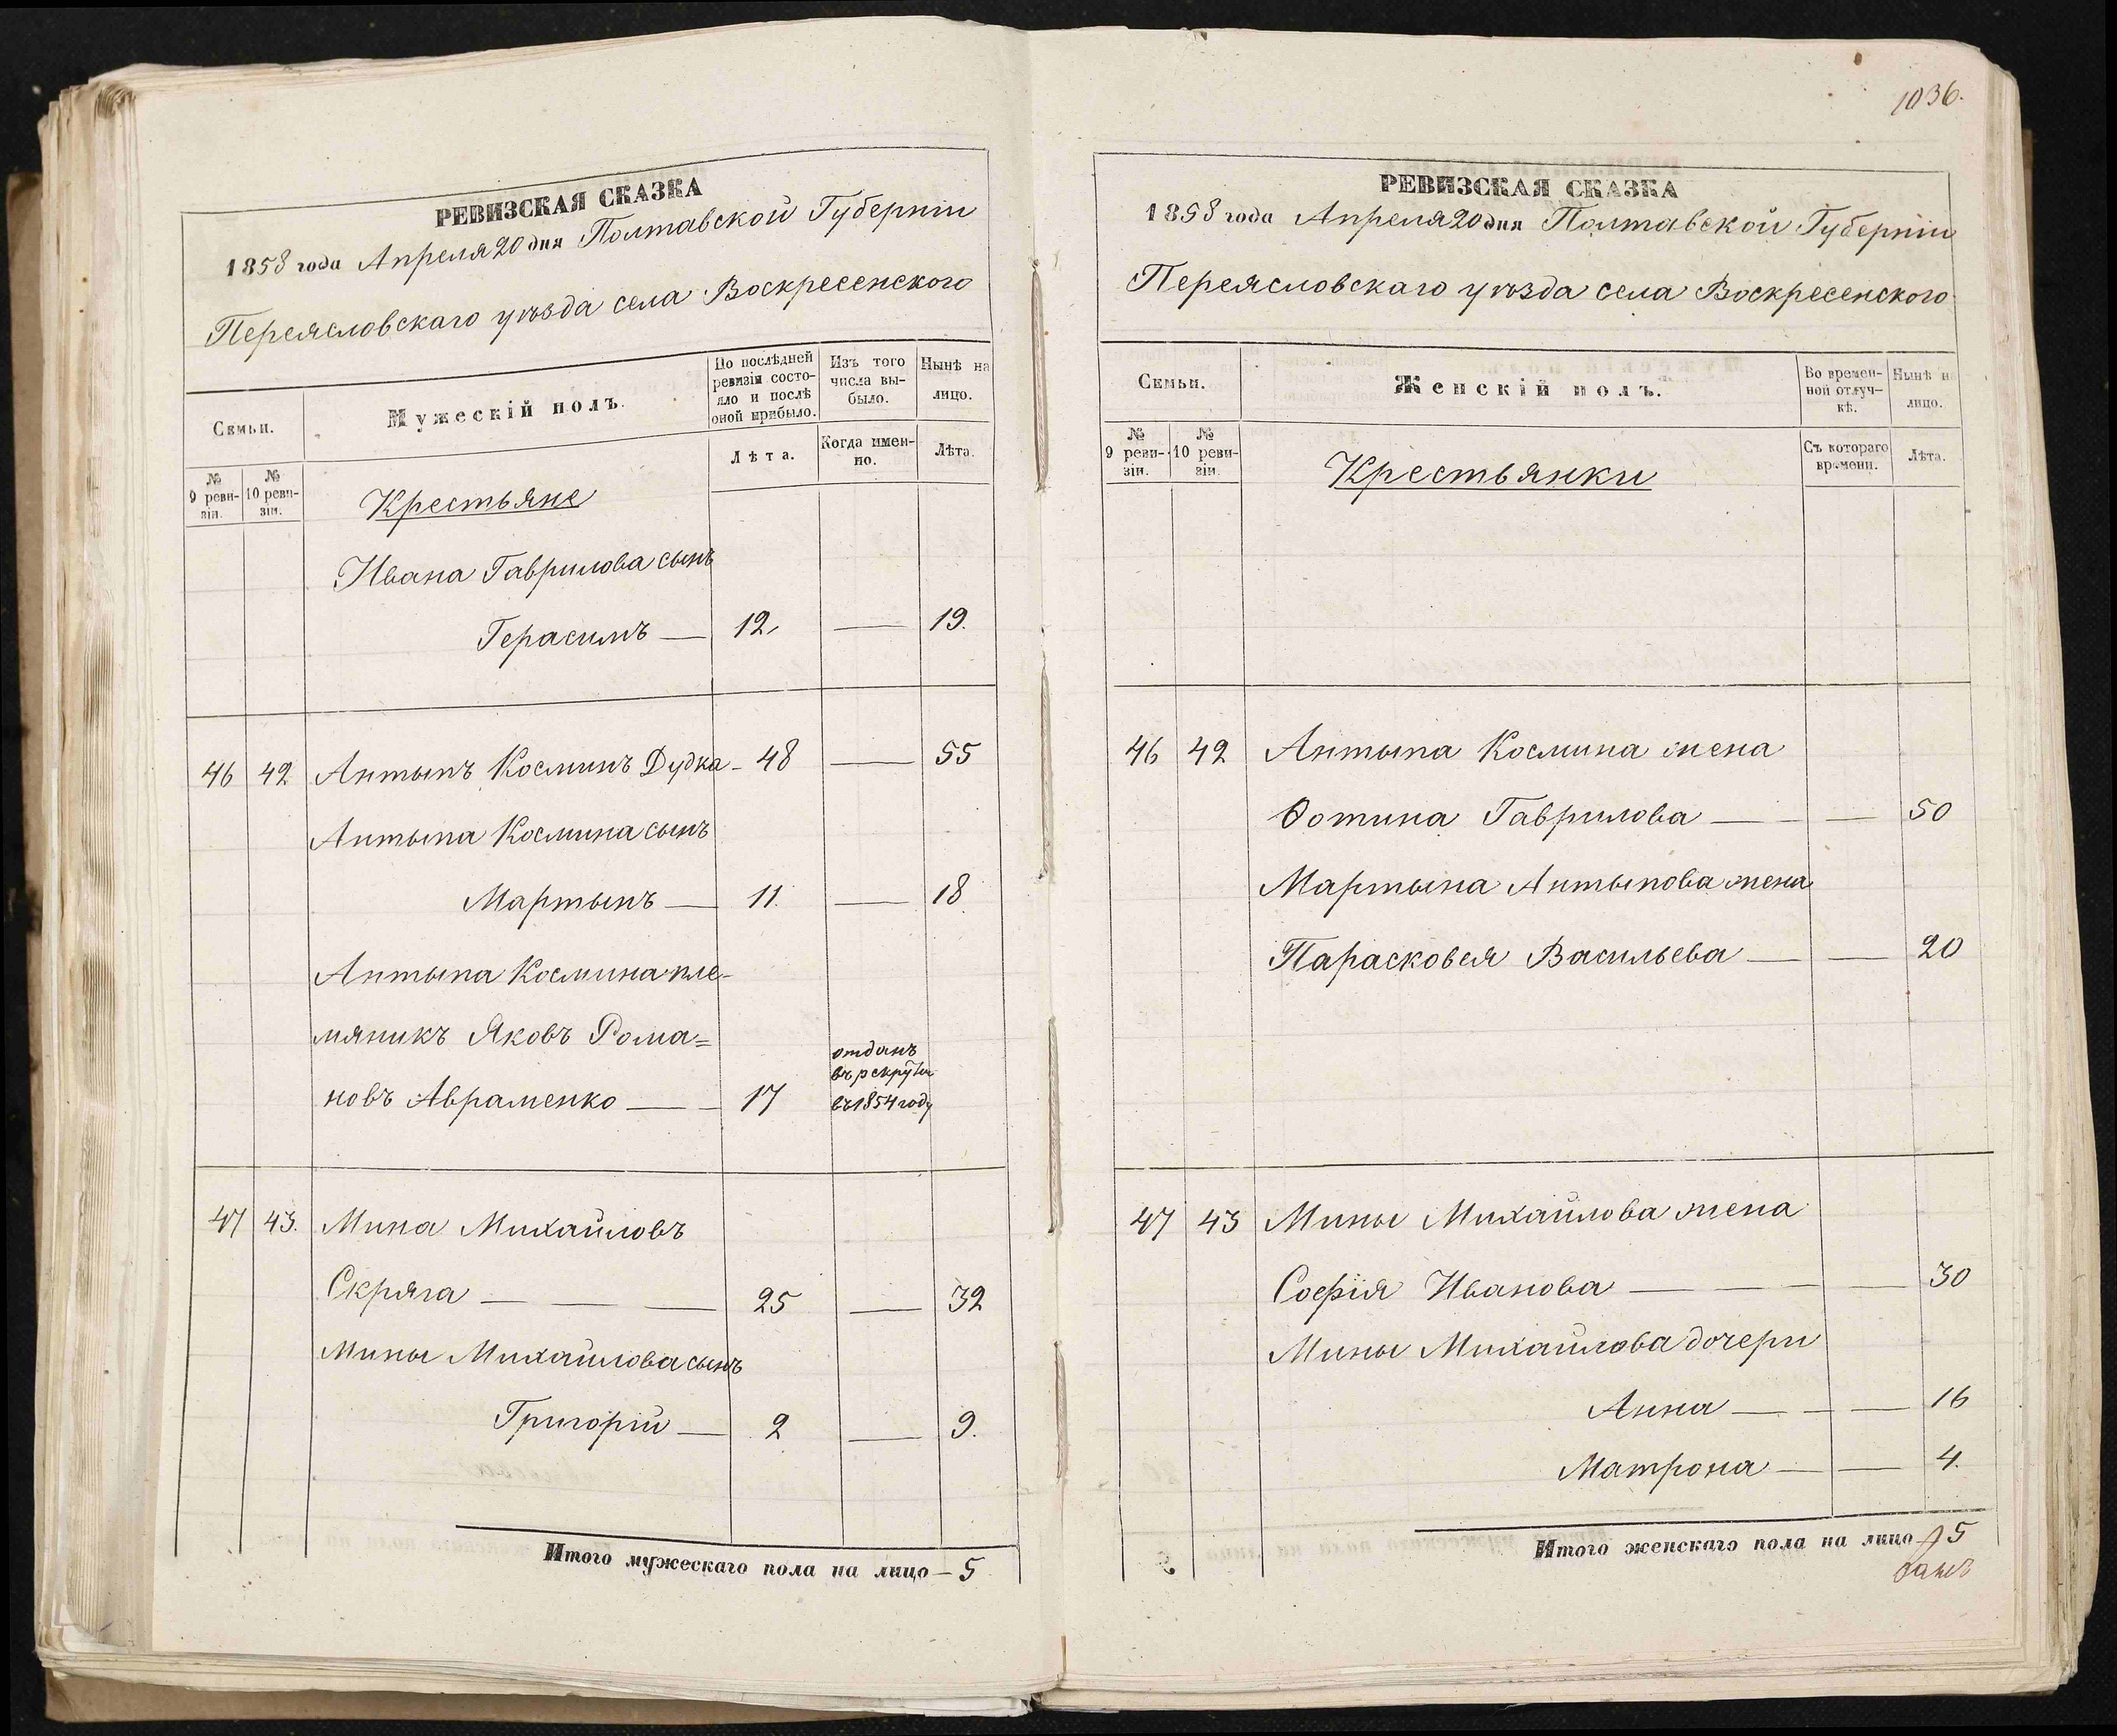 РЕВИЗСКАЯ СКАЗКА
1858 года Апреля 20 дня Полтавской Губерніи
Переясловскаго уѣзда села Воскресенского
Семьи.
Мужескій полъ.
По послѣдней ревизіи состояло и послѣ оной прибыло.
Изъ того числа выбыло.
Нынѣ на лицо.
№ 9 ревизіи.
№ 10 ревизіи.
Лѣта.
Когда именно.
Лѣта.
Крестьяне
Ивана Гаврилова сынъ
Герасимъ — 12 — 19.
46 42 Антыпъ Косминъ Дудка - 48 — 55
Антыпа Космина сынъ
Мартынъ — 11. — 18
Антыпа Космина пле-
мяникъ Яковъ Рома=
новъ Авраменко — - 17 отданъ
въ рекруты
въ 1854 году
47 43. Мина Михайловъ
Скряга — — — 25 — 32
Мины Михайлова сынъ
Григорій — 2 — 9.
Итого мужескаго пола на лицо — 5
1036.
РЕВИЗСКАЯ СКАЗКА
1858 года Апреля 20 дня Полтавской Губерніи
Переясловскаго уѣзда села Воскресенского
Семьи.
Женскій полъ.
Во временной отлучкѣ.
Нынѣ на лицо.
№ 9 ревизіи.
№ 10 ревизіи.
Съ котораго времени.
Лѣта.
Крестьянки
46 42 Антыпа Космина жена
Ѳотина Гаврилова — — 50
Мартына Антыпова жена
Парасковея Васильева — — 20
47 43 Мины Михайлова жена
Софія Иванова — — — 30
Мины Михайлова дочери
Анна — - — 16
Матрона — — 4.
Итого женскаго пола на лицо 5